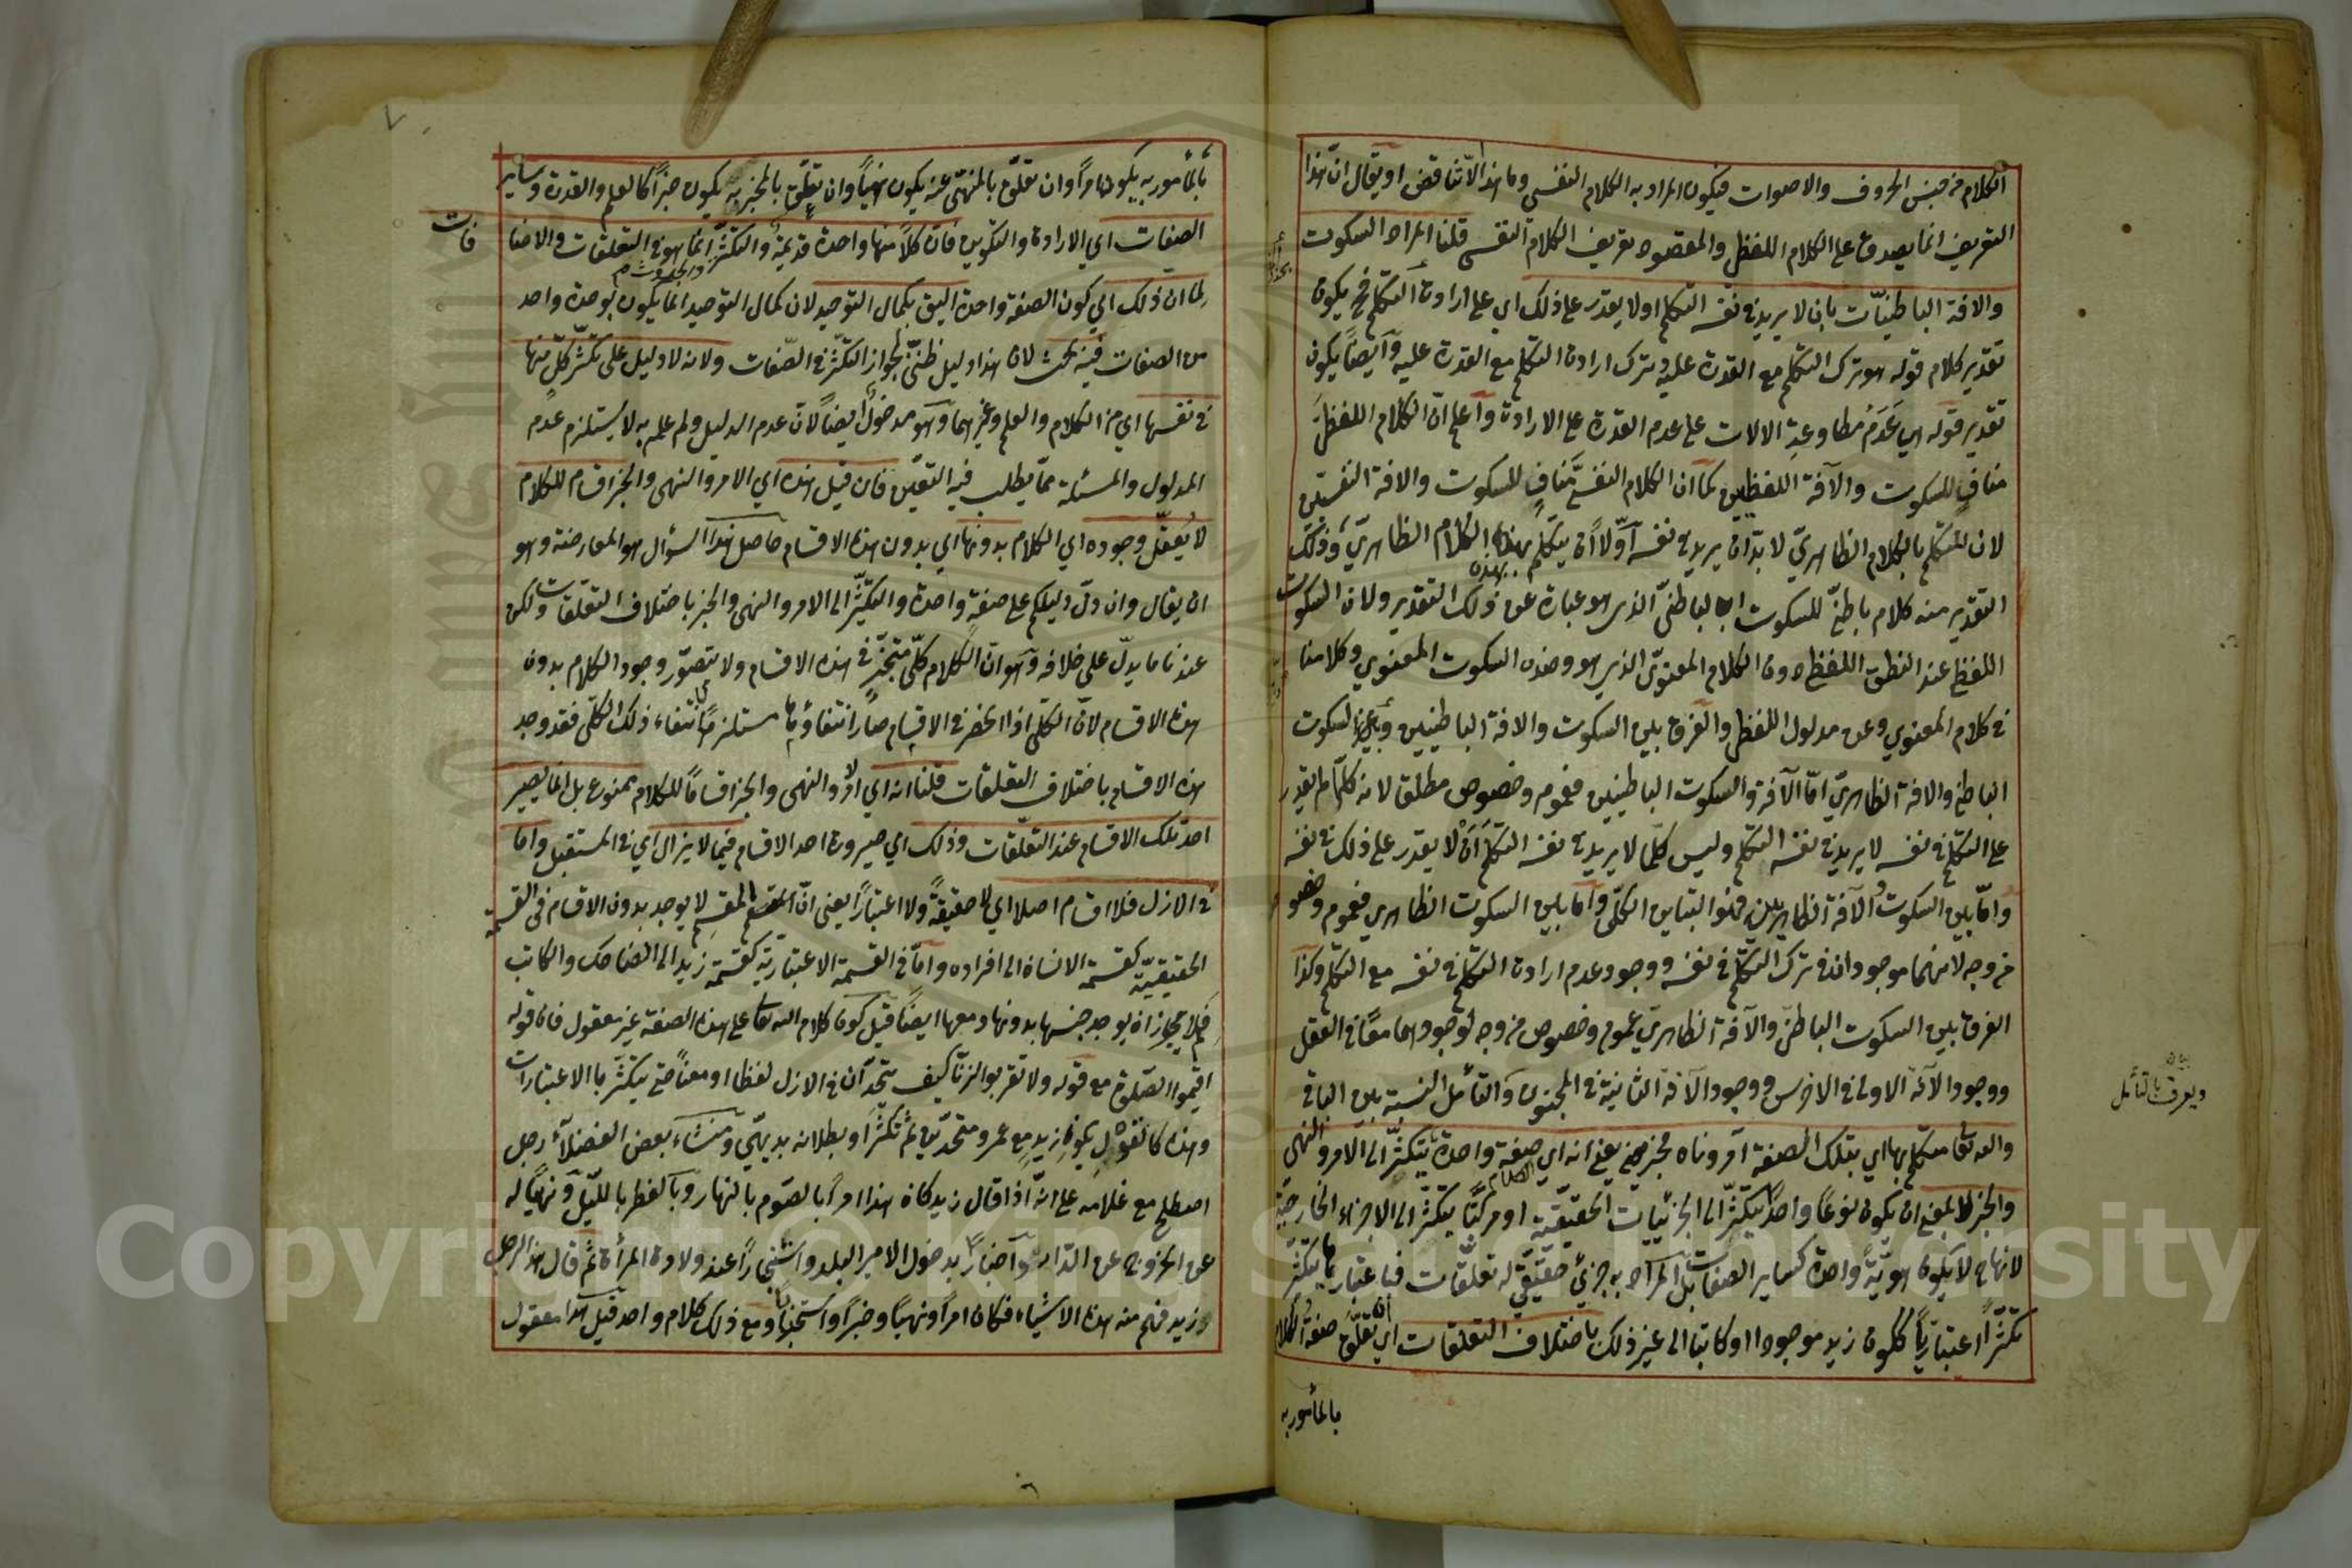 الكلام من جنس الحروف والاصوات فيكون المراد به الكلام النفسي وما هذا الا تناقض او يقال ان هذا
التعريف انما يصدق على الكلام اللفظي والمقصود تعريف الكلام النفسي قلنا المراد السكوت
والافة الباطنيّات بان لا يريد في نفسه التكلم او لا يقدر على ذلك اي على ارادة التكلم فح يكون
تقدير كلام قوله هو ترك التكلم مع القدرة عليه ترك ارادة التكلم مع القدرة عليه وايضا يكون
تقدير قوله هي عَدَمُ مطاوعة الالات على عدم القدرة على الارادة واعلم ان الكلام اللفظيّ
منافٍ للسكوت والآفة اللفظيين كما ان الكلام النفسيّ منافٍ للسكوت والافة النفسيين
لان المتكلم بالكلام الظاهريّ لا بدّ ان يريد في نفسه اوّلاً ان يتكلم بهذا الكلام الظاهريّ وذلك
التقدير منه كلام باطنيّ للسكوت الباطنيّ الذي هو عبارة عن ذلك التقدير ولان السكوت
اللفظيّ عند النطق اللفظي دون الكلام المعنويّ الذي هو وضده السكوت المعنوي وكلامنا
في كلام المعنوي وعن مدلول اللفظي والفرق بين السكوت والافة الباطنيين وبين السكوت
الباطني والافة الظاهريّ امّا الآفة والسكوت الباطنيين فعموم وخصوص مطلق لانه كلّما لم يقدر
على التكلّم في نفسه لا يريد في نفسه التكلم وليس كلّما لا يريد في نفسه التكلم ان لا يقدر على ذلك في نفسه
وامّا بين السكوت والآفة الظاهريين فهو التباين الكلّي وامّا بين السكوت الظاهري فعموم وخصوص
من وجه لانهما موجودان في ترك التكلّم في نفسه ووجود عدم ارادة التكلم في نفسه مع التكلم وكذا
الفرق بين السكوت الباطنيّ والآفة الظاهريّ عموم وخصوص من وجه لوجودهما معًا في العقل
ووجود الآفة الاولى في الاخرس ووجود الآفة الثانية في المجنون والقائل النسبة بين الباقي
ويعرف بالتأمل
والله تعالى متكلم بها اي بتلك الصفة آمر وناه مخبر يعني انه اي صفة واحدة يتكثّر الى الامر والنهي
والخبر لا بمعنى ان يكون نوعًا واحدًا يتكثّر الى الجزئيات الحقيقيّة او مركبًا يتكثّر الى الاجزاء الخارجيّة
لانها ح لا يكون هويّة واحدة كساير الصفات بل المراد به جزئي حقيقيّ له تعلّقات فباعتبارها يتكثّر
تكثّرًا اعتباريًّا ككون زيد موجودا او كاتبا الى غير ذلك باختلاف التعلقات اي ان تعلّق صفة الكلام
بالمأمور به
بالمأمور به يكون امرًا وان تعلّق بالمنهيّ عنه يكون نهيًا وان تعلّق بالمخبر به يكون خبرًا كالعلم والقدرة وساير
الصفات اي الارادة والتكوين فان كلًّا منها واحدة قديمة والتكثّر انما هو في التعلقات والاضا
فات
لما ان ذلك اي كون الصفة واحدة اليق بكمال التوحيد لان كمال التوحيد انما يكون بوحدة واحد
من الصفات فيه بحث لان هذا دليل ظنّيّ لجواز التكثّر في الصّفات ولانه لا دليل على تكثّر كلّ منها
في نفسها اي من الكلام والعلم وغيرهما وهو مدخول ايضاً لان عدم الدليل ولم علم به لا يستلزم عدم
المدلول والمسئلة ممّا يطلب فيه التعيّن فان قيل هذه اي الامر والنهي والخبر اقسام للكلام
لا يُعقل وجوده اي الكلام بدونها اي بدون هذه الاقسام حاصل هذا السؤال هو المعارضة وهو
ان يقال وان دلّ دليلكم على صفة واحدة والتكثّر الى الامر والنهي والخبر باختلاف التعلقات ولكن
عندنا ما يدلّ على خلافه وهو انّ الكلام كلّيّ متحيّز في هذه الاقسام ولا يتصوّر وجود الكلام بدون
هذه الاقسام لانّ الكلّي اذا انحصر في الاقسام صار انتفاؤها مستلزمًا انتفاء ذلك الكلّي فقد وجد
هذه الاقسام باختلاف التعلقات قلنا انه اي الامر والنهي والخبر اقسامًا للكلام ممنوع بل انما يصير
احد تلك الاقسام عند التعلّقات وذلك اي صيرورة احد الاقسام فيما لا يزال اي في المستقبل واما
في الازل فلا اقسام اصلا اي لا حقيقةً ولا اعتبارًا يعني انّ المقسم لا يوجد بدون الاقسام في القسمة
الحقيقيّة كقسمة الانسان الى افراده وامّا في القسمة الاعتباريّة كقسمة زيد الى الضاحك والكاتب
فلا يجاز ان يوجد جنسها بدونها ومعها ايضًا قيل كون كلام الله تعالى على هذه الصفة غير معقول فان قوله
اقيموا الصلوة مع قوله ولا تقربوا الزنا كيف يتحدّان في الازل لفظا او معناً حتى يتكثّر بالاعتبارات
وهذه كالقول بكون زيد مع عمرو متحدين ثم تكثّرا وبطلانه بديهيّ ومنشاء بعض الفضلاء رجل
اصطلح مع غلامه على انّه اذا قال زيد كان هذا امرًا بالصّوم بالنهار وبالفطر بالليل ونهيًا له
عن الخروج عن الدّار واخبارًا بدخول الامير البلد واستخبارًا عند ولادة المرأة ثم قال هذا الرجل
زيد فهم منه هذه الاشياء فكان امرًا ونهيًا وخبرًا واستخبارًا ومع ذلك كلام واحد قيل هذا معقول
Copyright © King Saud University